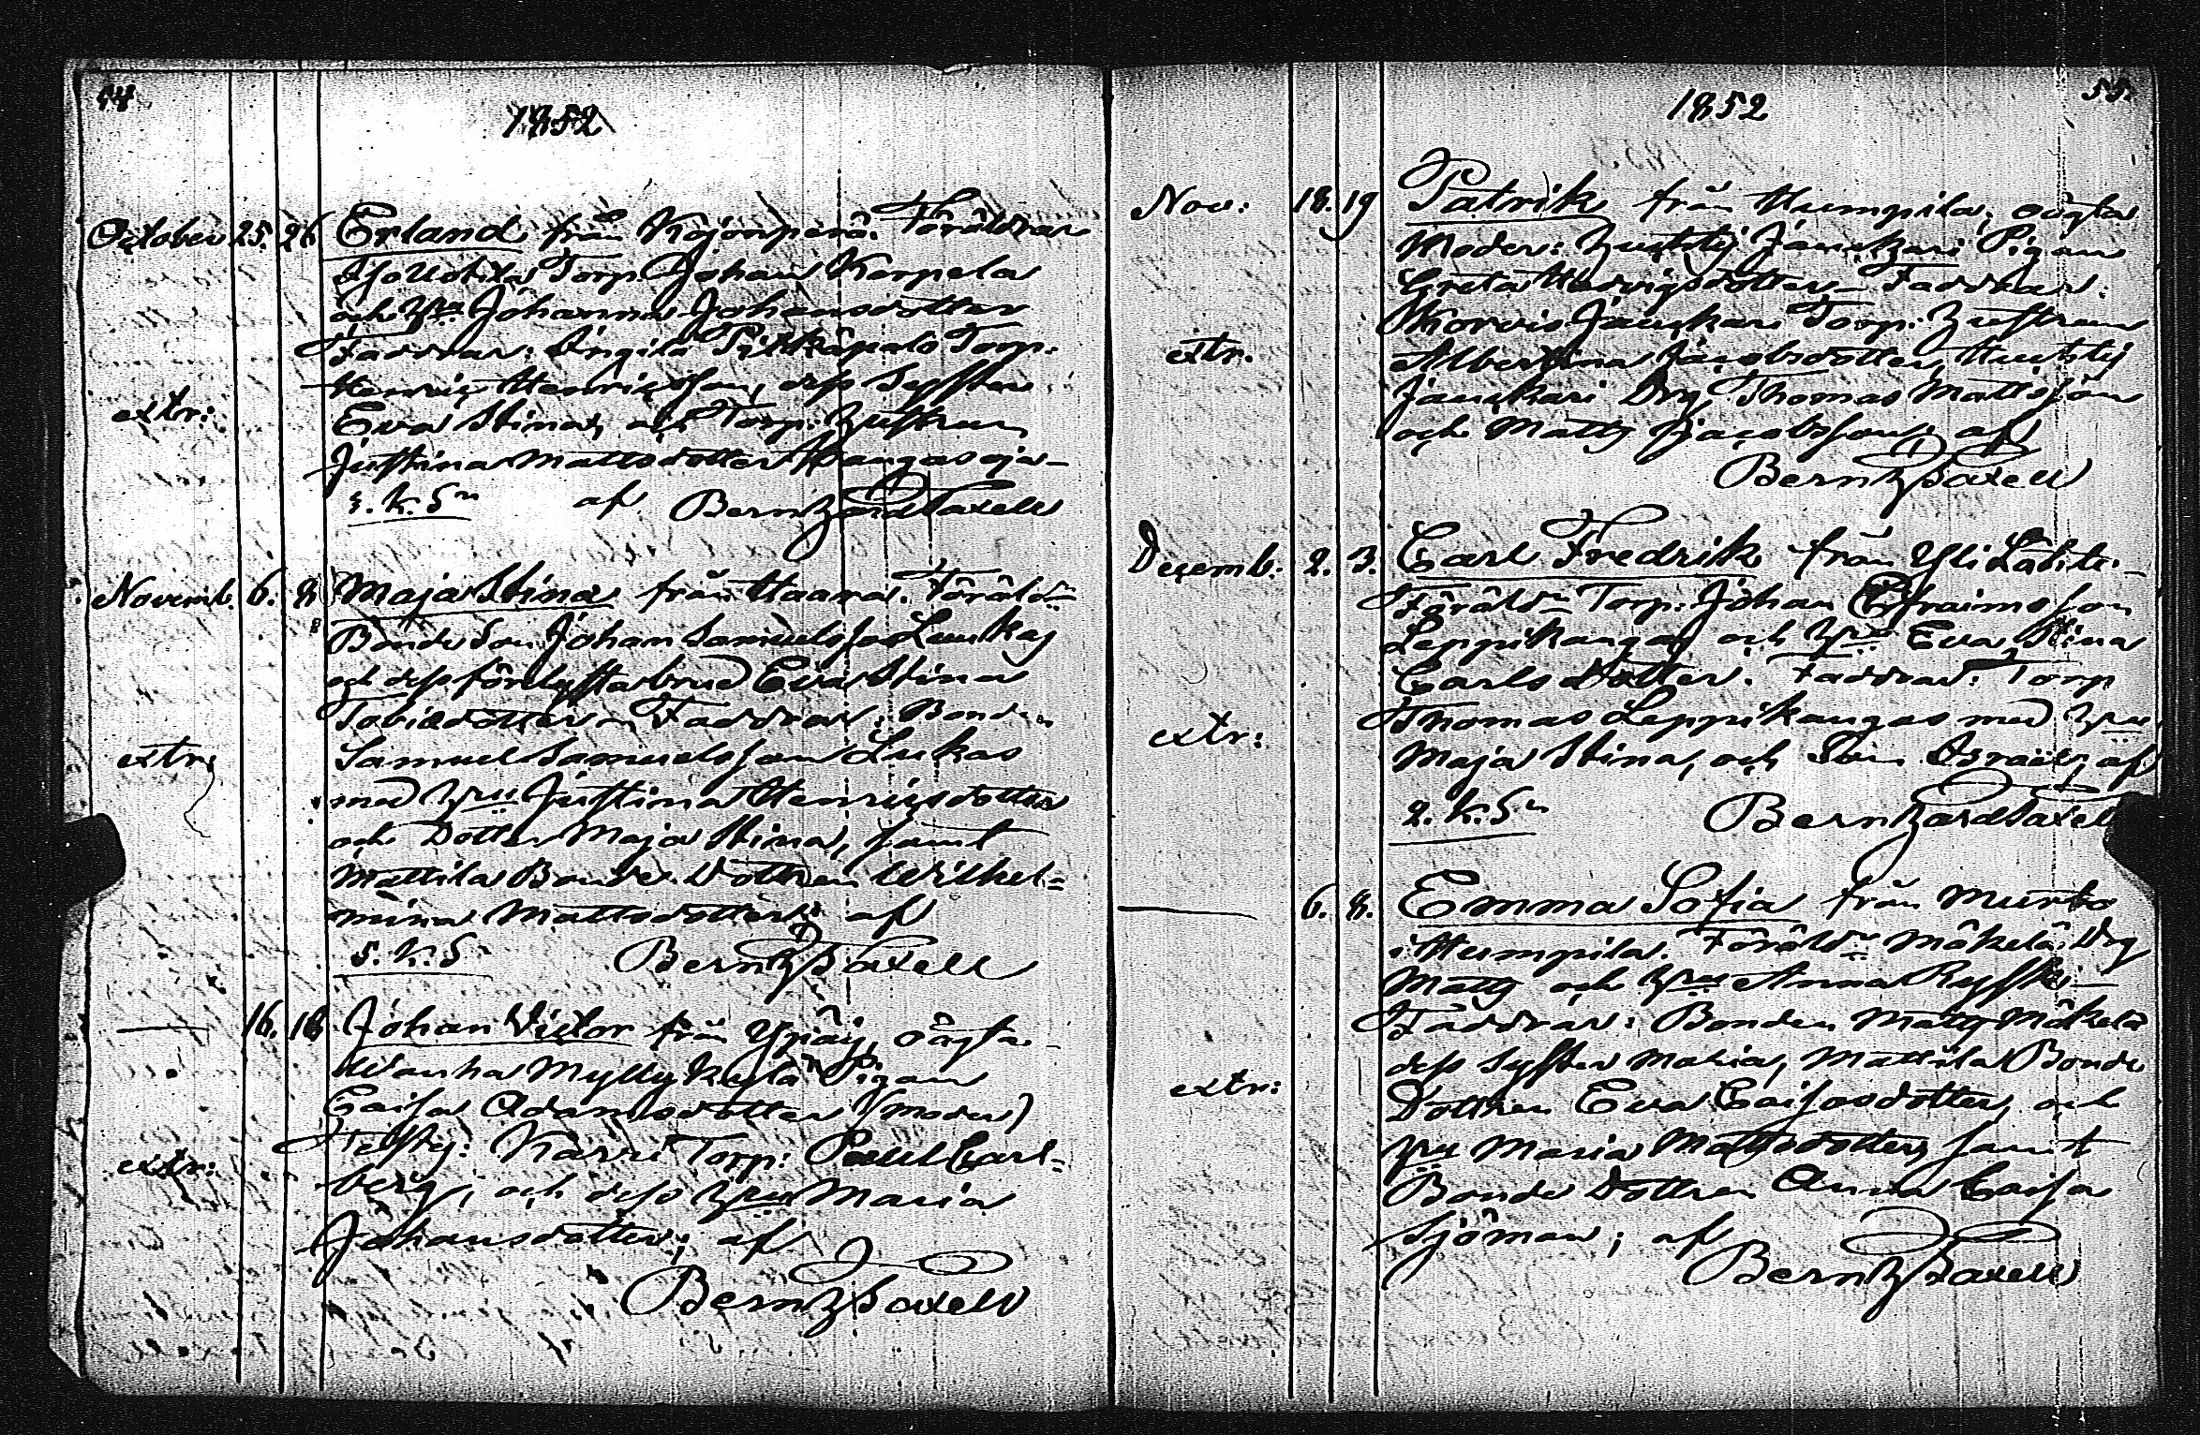 54
1852
October 25. 26. Erland från Kojonperä. Föräldrar
Iso Uotila Torp. Johan Korpela
och Hru Johanna Johansdotter
Faddrar: Torp:
Henric Henricsson, dess Syster
Eva Stina, och Torp. Hustrun
extr:
Justina Mattsdotter Kangasoja
3. K. Sn af Bernhard Taxell
Novemb. 6. 8 Maja Stina från Haara. Föräldr
Bonde Son Johan Samuelsson Luukas
och dess förlofta brud Eva Stina
Tobiædotter Faddrar: Bonden
Samuel Samuelsson Lukas
extr:
med Hru Justina Henricsdotter
och Dotter Maja Stina, samt
Mattila Bonde Dottren Wilhel=
mina Mattsdotter; af
5. K. Sn Bernh Taxell
— 16. 18 Johan Victor från Ypäj, oägta
Wanha Myllykylä Pigan
Caisa Adamsdotter (Moder)
Test: Karri Torp: Paul Carl=
extr:
berg, och dess Hru Maria
Johansdotter; af
Bernh Taxell
55.
1852
Nov: 18. 19 Patrik från Humpila; oägta
Moder: Pigan
Greta Hedvigsdotter Faddrar:
Torp: Hustrun
extr.
Albertina Jacobsdotter,
Drg Thomas Mattsson
och Matts Jacobsson; af
Bernh Taxell
Decemb. 2. 3. Carl Fredrik från Yli Lähte.
Föräldr Torp: Johan Efraimsson
Leppikangas och Hru Eva Stina
Carlsdotter. Faddrar: Torp
Thomas Leppikangas med Hru
extr:
Maja Stina, och Son Israel; af
2. K. Sn Bernhard Taxell
— 6. 8. Emma Sofia från Murto
i Humpila. Föräldr Mäkelä Drg
Matts och Hru Anna
Faddrar: Bonden Matts Mäkelä
dess Syster Maria, Mattila Bonde
extr:
Dottren Eva Caisasdotter, och
Maria Mattsdotter, samt
Bonde Dottren Anna Caisa
Sjöman; af
Bernh Taxell